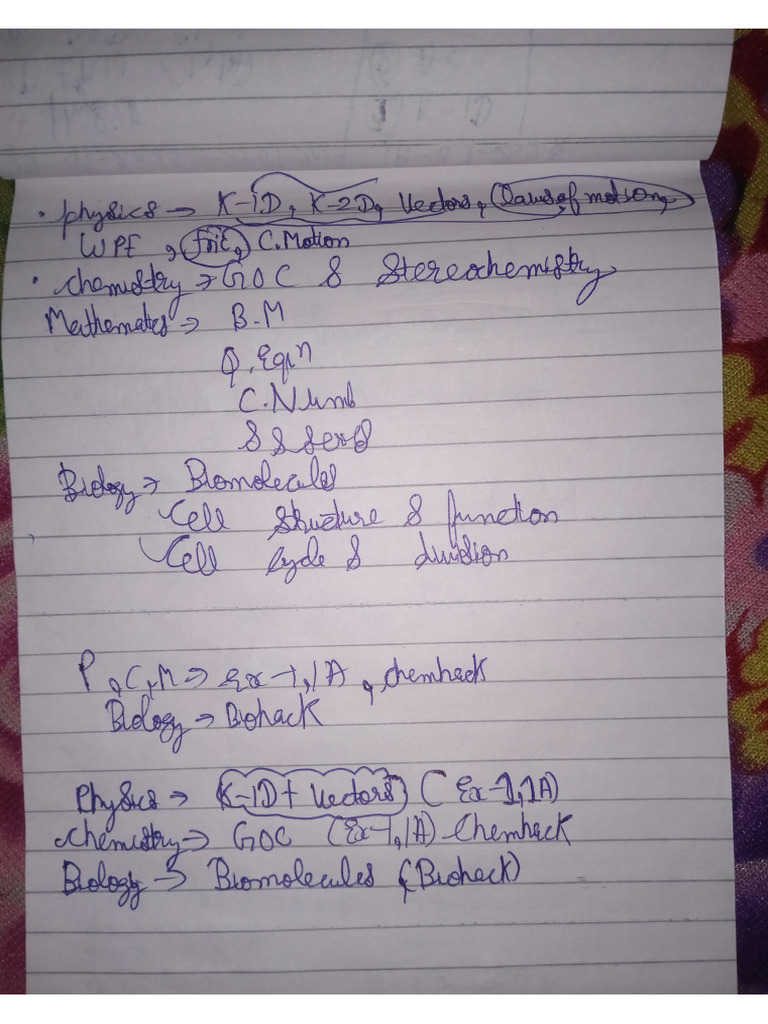 • Physics → K-1D, K-2D, Vectors, Laws of motion,
WPE, fric, C.Motion
• Chemistry → GOC & Stereochemistry
Mathematics → B.M
Q. Eqn
C. Numb
S S Series
Biology → Biomolecules
Cell Structure & function
Cell Cycle & division
P, C, M → Ex-1, 1A, Chemhack
Biology → Biohack
Physics → K-1D + Vectors (Ex-1, 1A)
Chemistry → GOC (Ex-1, 1A) Chemhack
Biology → Biomolecules (Biohack)